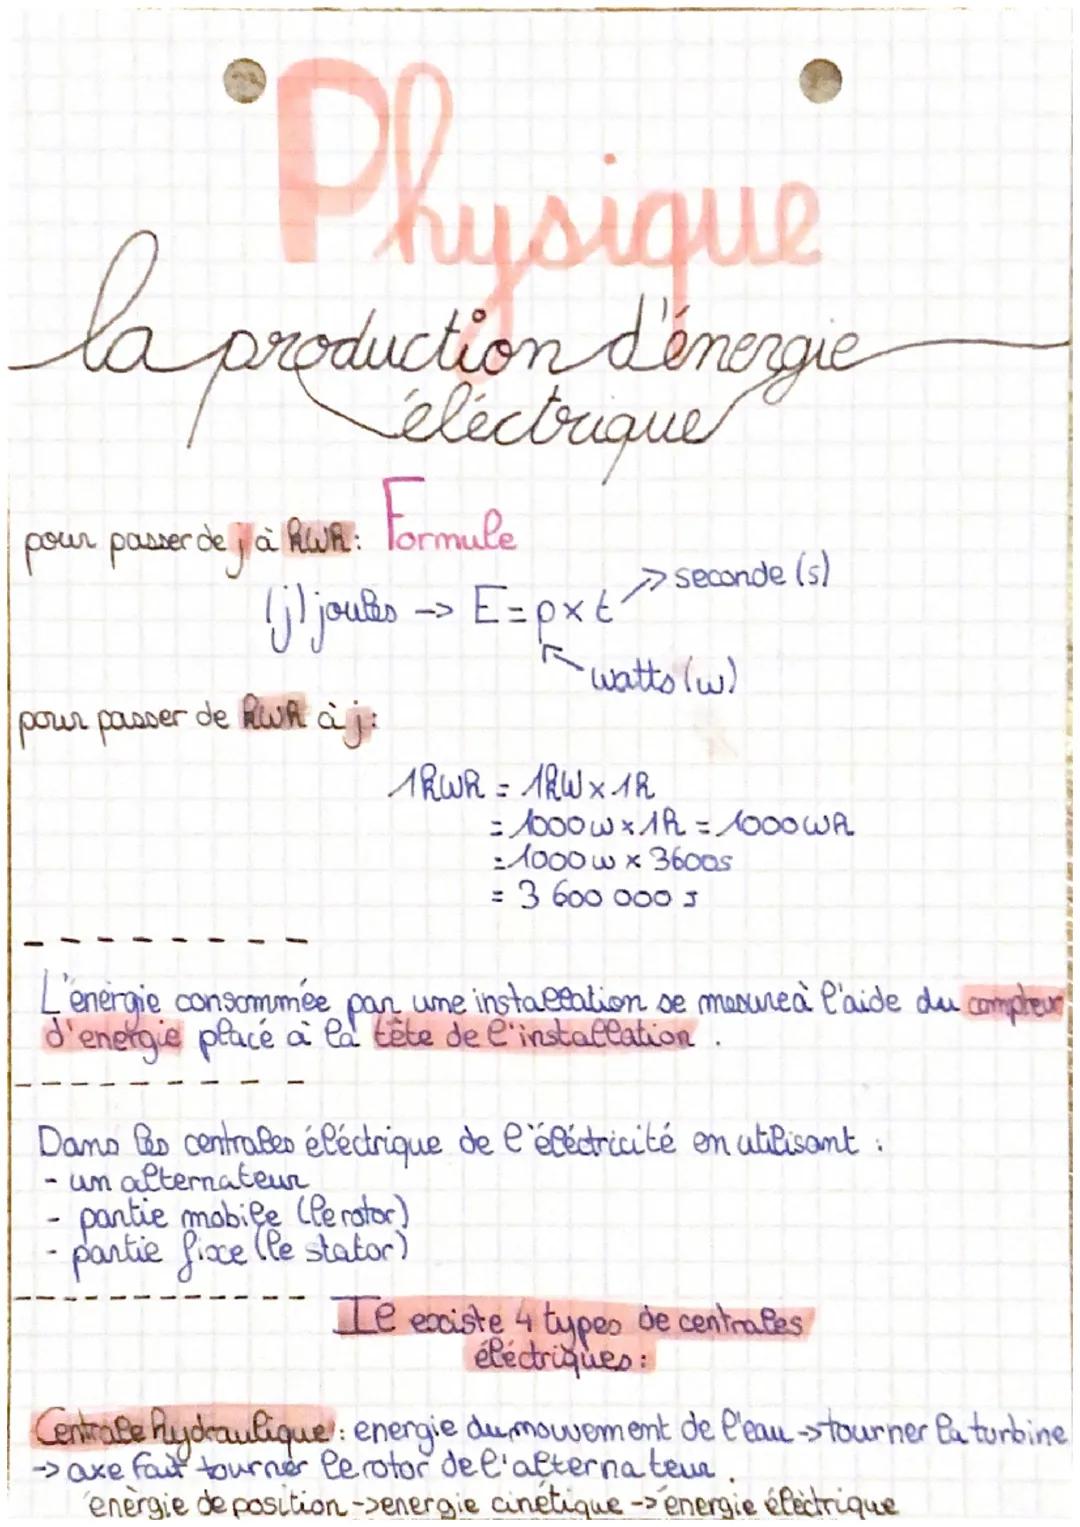 Physique
la production d'énergie
éléctrique
pour passer de j à kwh: Formule
(j) joules -> E = p x t -> seconde (s)
watts (w)
pour passer de kwh à j:
1kwh = 1kw x 1h
= 1000 w x 1h = 1000 wh
= 1000 w x 3600s
= 3 600 000 J
L'énergie consommée par une installation se mesure à l'aide du compteur
d'energie placé à la tête de l'installation.
Dans les centrales éléctrique de l'éléctricité en utilisant :
- un alternateur
- partie mobile (le rotor)
- partie fixe (le stator)
Il existe 4 types de centrales
éléctriques :
Centrale hydraulique : energie du mouvement de l'eau -> tourner la turbine
-> axe fait tourner le rotor de l'alternateur.
énergie de position -> energie cinétique -> énergie éléctrique